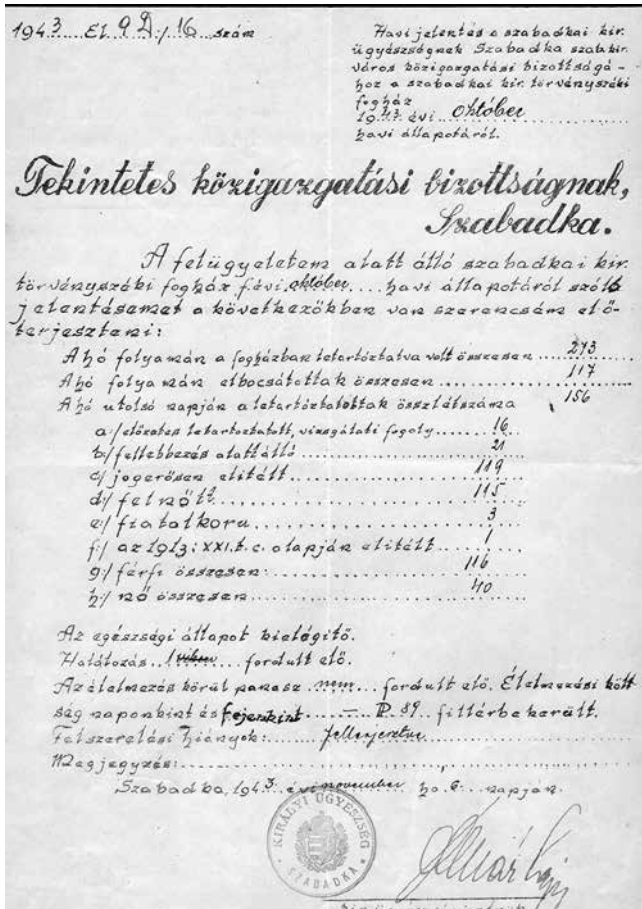 1943. El. 9 D:/16. szám
Havi jelentés a szabadkai kir.
ügyészségnek Szabadka szab. kir.
város közigazgatási bizottságá-
hoz a szabadkai kir. törvényszéki
fogház
1943. évi október
havi állapotáról.
Tekintetes közigazgatási bizottságnak,
Szabadka.
A felügyeletem alatt álló szabadkai kir.
törvényszéki fogház f. évi október.... havi állapotáról szóló
jelentésemet a következőkben van szerencsém elő-
terjeszteni:
A hó folyamán a fogházban letartóztatva volt összesen ..... 273
A hó folyamán elbocsátottak összesen ..... 117
A hó utolsó napján a letartóztatottak összlétszáma 156
a:/ előzetes letartóztatott, vizsgálati fogoly....... 16
b:/ fellebbezés alatt álló ....... 21
c:/ jogerősen elitélt ....... 119
d:/ felnőtt ....... 115
e:/ fiatalkoru ....... 3
f:/ az 1913: XXI. t. c. alapján elitélt ....... 1
g:/ férfi összesen: ....... 116
h:/ nő összesen ....... 40
Az egészségi állapot kielégitő.
Halálozás 1 .... fordult elő.
Az élelmezés körül panasz nem ... fordult elő. Élelmezési költ
ség naponkint és fejenkint .... — P. 89 fillérbe került.
Felszerelési hiányok:
Megjegyzés:
Szabadka, 1943. évi november hó 6. napján.
KIRÁLYI ÜGYÉSZSÉG
SZABADKA